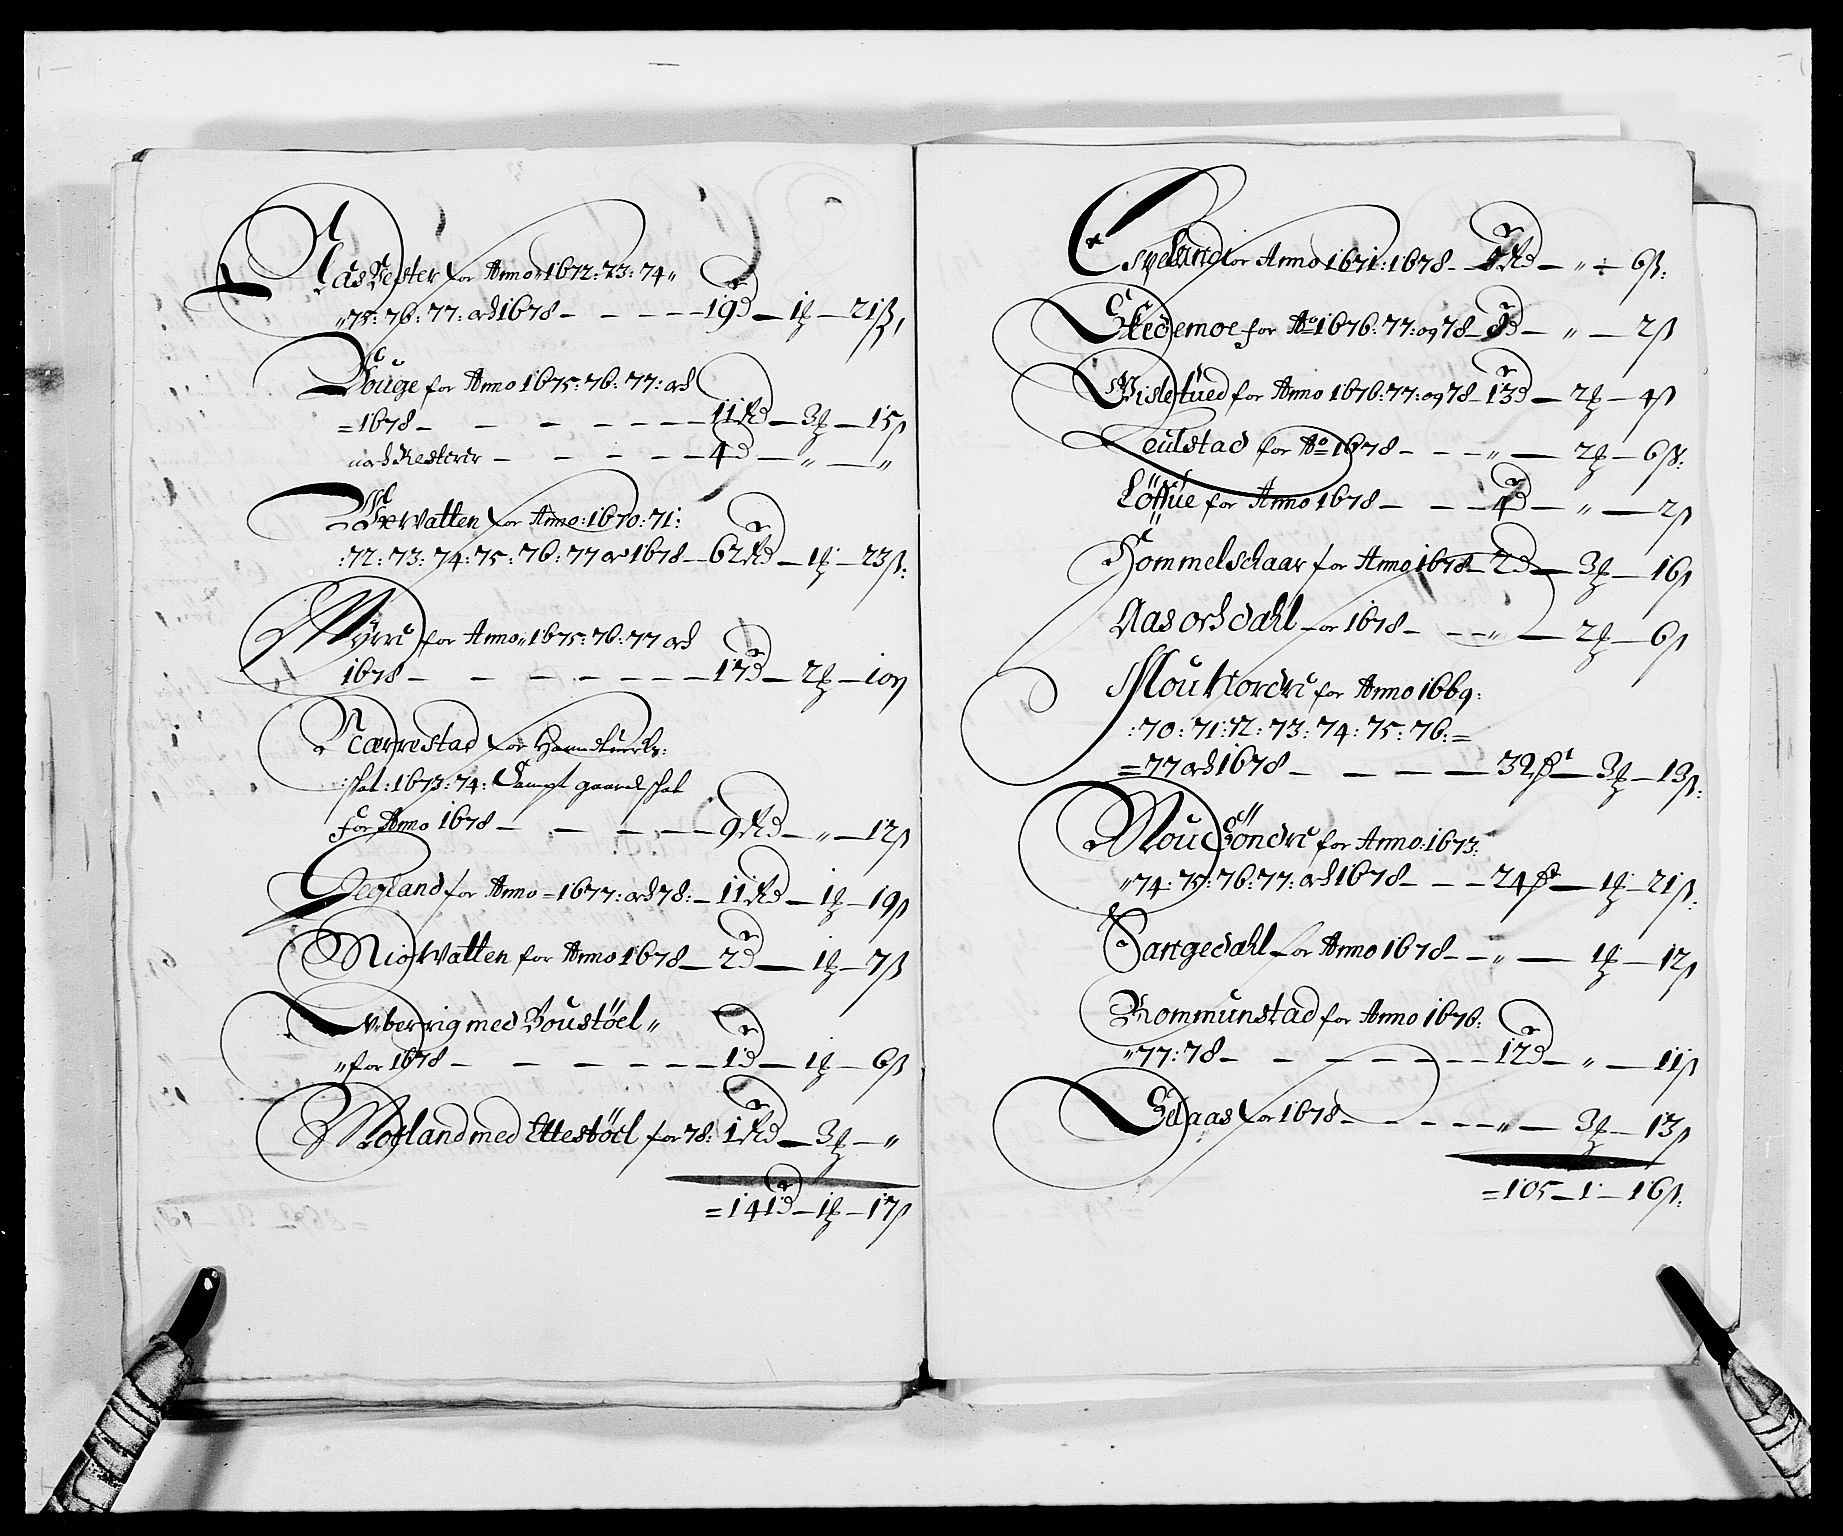 Aas Vester for Anno 1672: 73: 74 „
„ 75: 76: 77: och 1678 – – – – 19 rd – 1 ꝑ – 21 ß,
Houge for Anno 1675: 76: 77: och
= 1678 – – – – – – 11 Rd – 3 ꝑ – 15 ß
noch Resterer – – – – – 4 rd – „ – „
Wxvatten for Anno: 1670: 71:
: 72: 73: 74: 75: 76: 77 och 1678 – 62 Rd – 1 ꝑ – 23 ß:
Myrre for Anno „ 1675: 76: 77 och
1678 – – – – – – 17 rd – 2 ꝑ – 10 ß
Nærrestad for
: schat: 1673: 74: Sampt gaardschat
for Anno 1678 – – – – 9 Rd – „ – 12 ß
Gegland for Anno = 1677: och 78: – 11 Rd – 1 ꝑ – 19 ß
Miovatten for Anno 1678 – 2 rd – 1 ꝑ – 7 ß
Uberrig med Boustöel „
„ for 1678 – – – – – – 1 rd – 1 ꝑ – 6 ß
Moland med Ettestöel for 78: 1 Rd – 3 ꝑ – „
= 141 rd – 1 ꝑ – 17 ß
Espeland for Anno 1671: 1678 – 5 Rd – „ – 6 ß:
Skedemoe for Ao 1676: 77: og 78 – 8 rd – „ – 2 ß
Wisletued for Anno 1676: 77: og 78 – 13 rd – 2 ꝑ – 4 ß
Leulstad for Ao 1678 – – – „ – 2 ꝑ – 6 ß:
Löffue for Anno 1678 – – – 4 rd – „ – 2 ß
Hommelschaar for Anno 1678 – 2 rd – 3 ꝑ – 16 ß
Aas och dahl for 1678 – – – „ – 2 ꝑ – 6 ß
Mou Nordre for Anno 1669:
: 70: 71: 72: 73: 74: 75: 76: =
= 77 och 1678 – – – – 32 rd – 3 ꝑ – 13 ß:
Mou Söndre for Anno: 1673:
„ 74: 75: 76: 77: och 1678 – – – 24 rd – 1 ꝑ – 21 ß:
Sangedahl for Anno 1678 – – „ – 1 ꝑ – 12 ß
Rommunstad for Anno 1676:
„ 77: 78 – – – – – – 12 rd – „ – 11 ß
Selaas for 1678 – – – – – „ – 3 ꝑ – 13 ß
= 105 – 1 – 16 ß: